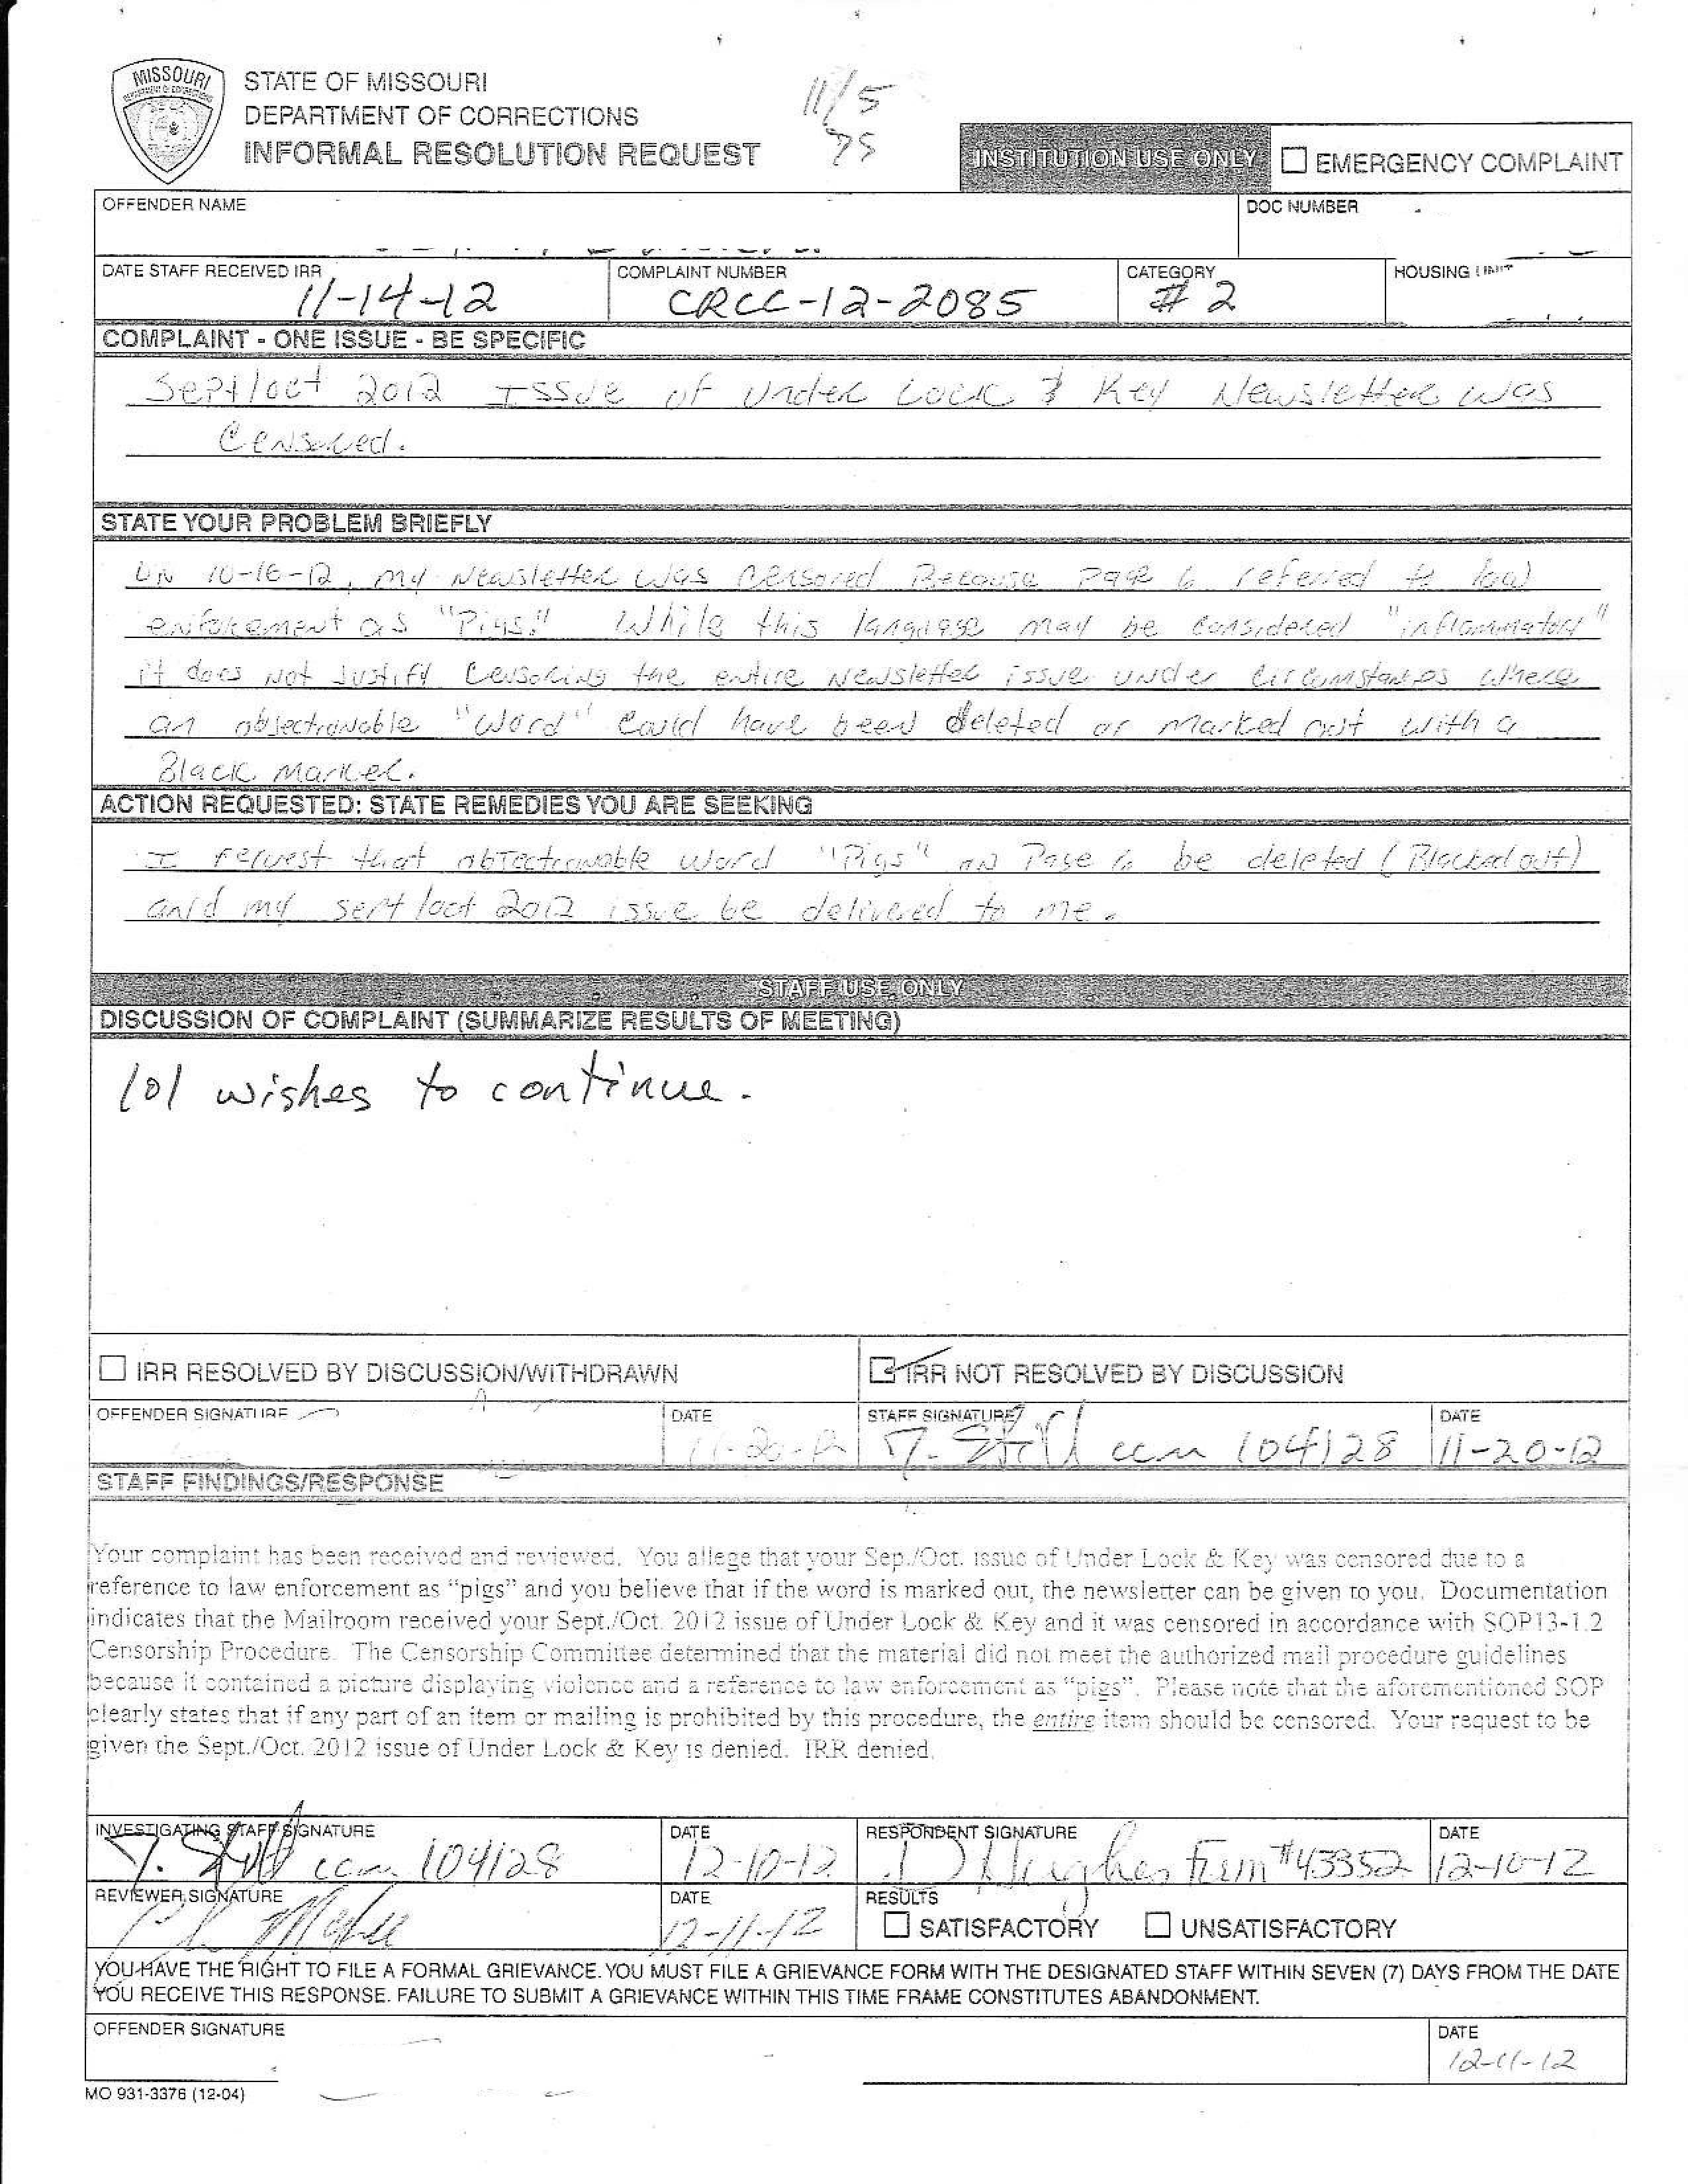 MISSOURI
STATE OF MISSOURI
DEPARTMENT OF CORRECTIONS
INFORMAL RESOLUTION REQUEST
11/5
75
INSTITUTION USE ONLY
EMERGENCY COMPLAINT
OFFENDER NAME
DOC NUMBER
DATE STAFF RECEIVED IRR
11-14-12
COMPLAINT NUMBER
CRCC-12-2085
CATEGORY
# 2
HOUSING UNIT
COMPLAINT - ONE ISSUE - BE SPECIFIC
Sept/oct 2012 Issue of Under Lock & Key Newsletter was
Censored.
STATE YOUR PROBLEM BRIEFLY
ON 10-16-12, my Newsletter was Censored Because Page 6 referred to law
enforcement as "Pigs." While this language may be considered "inflammatory"
it does Not Justify Censoring the entire Newsletter issue under circumstances where
an objectionable "word" could have been deleted or marked out with a
Black Marker.
ACTION REQUESTED: STATE REMEDIES YOU ARE SEEKING
I request that objectionable word "Pigs" on Page 6 be deleted (Blacked out)
and my sept/oct 2012 issue be delivered to me.
STAFF USE ONLY
DISCUSSION OF COMPLAINT (SUMMARIZE RESULTS OF MEETING)
wishes to continue.
IRR RESOLVED BY DISCUSSION/WITHDRAWN
IRR NOT RESOLVED BY DISCUSSION
OFFENDER SIGNATURE
DATE
11-20-12
STAFF SIGNATURE
ccm 104128
DATE
11-20-12
STAFF FINDINGS/RESPONSE
Your complaint has been received and reviewed. You allege that your Sep./Oct. issue of Under Lock & Key was censored due to a
reference to law enforcement as "pigs" and you believe that if the word is marked out, the newsletter can be given to you. Documentation
indicates that the Mailroom received your Sept./Oct. 2012 issue of Under Lock & Key and it was censored in accordance with SOP13-1.2
Censorship Procedure. The Censorship Committee determined that the material did not meet the authorized mail procedure guidelines
because it contained a picture displaying violence and a reference to law enforcement as "pigs". Please note that the aforementioned SOP
clearly states that if any part of an item or mailing is prohibited by this procedure, the entire item should be censored. Your request to be
given the Sept./Oct. 2012 issue of Under Lock & Key is denied. IRR denied.
INVESTIGATING STAFF SIGNATURE
ccm 104128
DATE
12-10-12
RESPONDENT SIGNATURE
Hughes #43352
DATE
12-10-12
REVIEWER SIGNATURE
DATE
12-11-12
RESULTS
SATISFACTORY
UNSATISFACTORY
YOU HAVE THE RIGHT TO FILE A FORMAL GRIEVANCE. YOU MUST FILE A GRIEVANCE FORM WITH THE DESIGNATED STAFF WITHIN SEVEN (7) DAYS FROM THE DATE
YOU RECEIVE THIS RESPONSE. FAILURE TO SUBMIT A GRIEVANCE WITHIN THIS TIME FRAME CONSTITUTES ABANDONMENT.
OFFENDER SIGNATURE
DATE
12-11-12
MO 931-3376 (12-04)